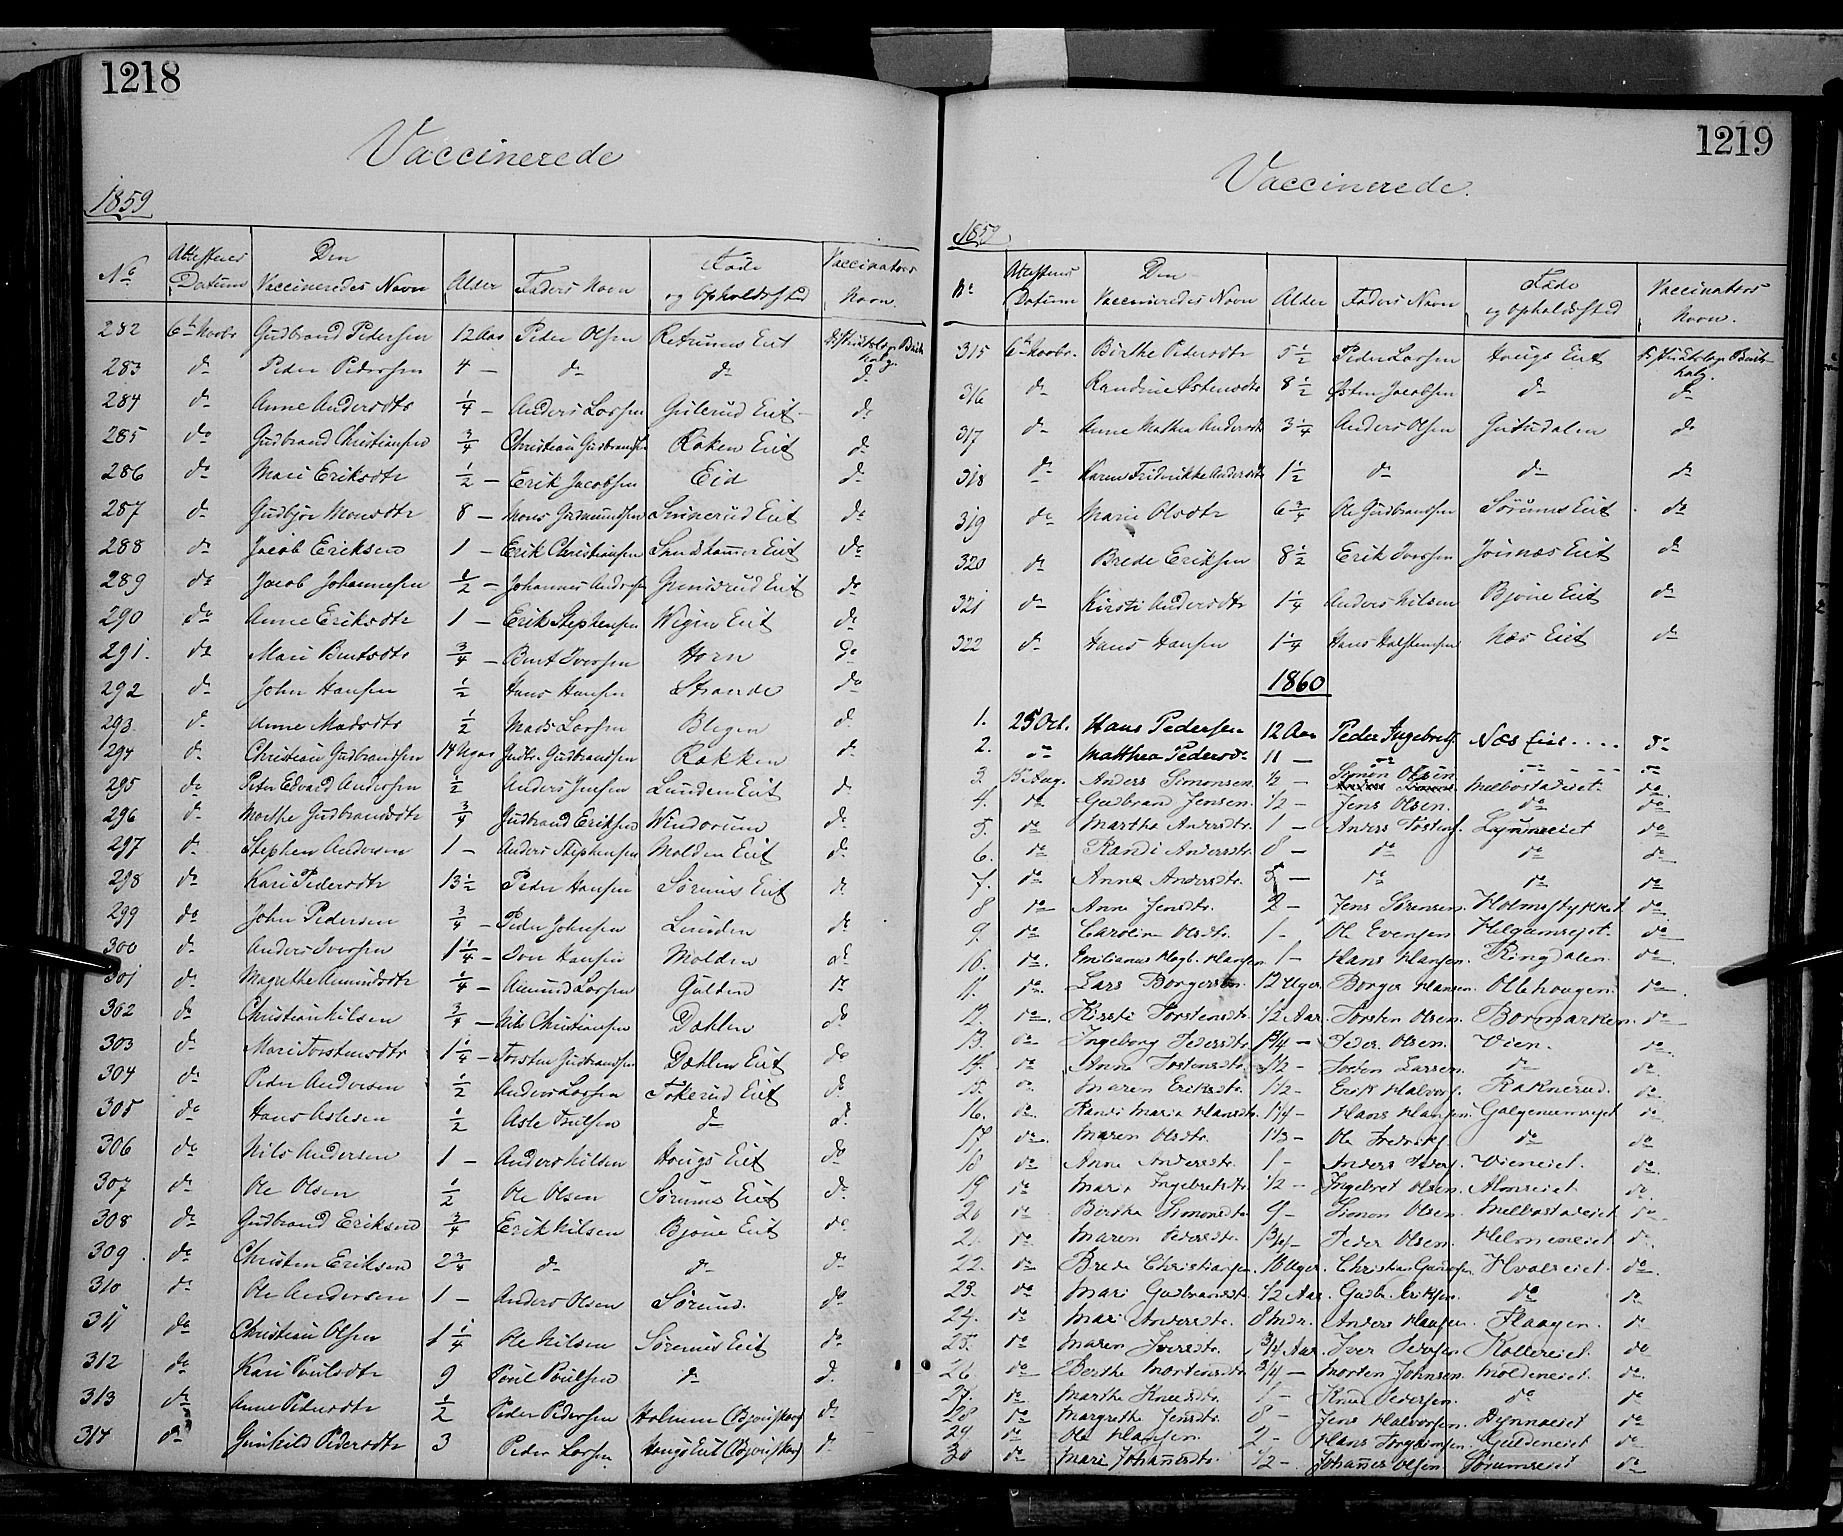 1218
Vaccinerede
1859
No Attestens Datum Den Vaccineredes Navn Alder Faders Navn Føde og Opholdssted Vaccinateurs Navn.
282 6te Novbr Gudbrand Pedersen 12 Aar Peder Olsen Eiet
283 do Peder Pedersen 4 – do do do
284 do Anne Andersdtr 1/4 – Anders Larsen Gulerud Eiet do
285 do Gudbrand Christiansen 3/4 Christian Gudbrandsen Røken Eiet do
286 do Mari Eriksdtr 1/2 – Erik Jacobsen Eid do
287 do Gudbjør Monsdtr 8 – Mons Gudmundsen Eiet do
288 do Jacob Eriksen 1 – Erik Christiansen Eiet do
289 do Jacob Johannesen 1/2 – Johannes Andersen Eiet do
290 do Anne Eriksdtr 1 – Erik Stephensen Wigen Eiet do
291. do Mari Berntsdtr 3/4 – Bernt Iversen Horn do
292 do John Hansen 1/2 Hans Hansen Strande do
293 do Anne Madsdtr 1/2 Mads Larsen Blegen do
294 do Christian Gudbrandsen 14 Uger Gudbr. Gudbrandsen Røkken do
295 do Peter Edvard Andersen 1/2 Anders Jensen Lunden Eiet do
296 do Marthe Gudbrandsdtr 3/4 Gudbrand Eriksen Windorum do
297 do Stephen Andersen 1 – Anders Stephensen Molden Eiet do
298 do Kari Pedersdtr 13 1/2 Peder Hansen Sørums Eiet do
299 do John Pedersen 3/4 – Peder Johnsen Lunden do
300 do Anders Iversen 1 1/4 – Iver Hansen Molden do
301 do Magrethe Amundsdtr 1/4 – Amund Larsen Gulden do
302 do Christian Nilsen 3/4 – Nils Christiansen Dahlen do
303 do Mari Torstensdtr 1 1/4 – Torsten Gudbrandsen Dahlen Eiet do
304 do Peder Andersen 1/2 Anders Larsen Tokerud Eiet do
305 do Hans Aslesen 1/2 Asle Poulsen do do
306 do Nils Andersen 1 – Anders Nilsen Hougs Eiet do
307 do Ole Olsen 1/2 Ole Olsen Sørums Eiet do
308 do Gudbrand Eriksen 3/4 Erik Nilsen Bjone Eiet do
309 do Christen Eriksen 2 3/4 do do do
310 do Ole Andersen 1 – Anders Olsen Sørum do
311 do Christian Olsen 1 1/4 Ole Nilsen Sørums Eiet do
312 do Kari Poulsdtr 9 Poul Poulsen do do
313 do Anne Pedersdtr 1/2 Peder Pedersen do
314 do Gunhild Pedersdtr 3 Peder Larsen Hougs Eiet do
1219
Vaccinerede.
1859
No Attestens Datum Den Vaccineredes Navn Alder Faders Navn Føde og Opholdssted Vaccinateurs Navn.
315 6te Novbr. Birthe Pedersdtr 5 1/2 Peder Larsen Hougs Eiet
316 do Randine Østensdtr 8 1/2 Østen Jacobsen do do
317 do Anne Mathea Andersdtr 3 1/4 Anders Olsen do
318 do Karen Fredrikke Andersdtr 1 1/2 do do do
319 do Marie Olsdtr 6 3/4 Ole Gudbrandsen Sørums Eiet do
320 do Brede Eriksen 8 1/2 Erik Iversen Eiet do
321 do Kirsti Andersdtr 1 1/4 Anders Nilsen Bjone Eiet do
322 do Hans Hansen 1 1/4 Hans Halstensen Næs Eiet do
1860
1. 25 Oct. Hans Pedersen 12 Aar Peder Ingebrets. Næs Eiet do
2. do Matthea Pedersd. 11 – do do do
3. Anders Simonsen 1/2 – Simon Olsen Melbostadeiet do
4. do Gudbrand Jensen 1/2 – Jens Olsen. do do
5. do Marthe Andersdtr. 1 – Anders Tostens. do
6. do Randi Andersdtr. 8 – do do do
7. do Anne Andersdtr. 5 – do do do
8 do Anne Jensdtr. 2 – Jens Sørensen. Holmstykket do
9. do Caroline Olsdtr. 1 – Ole Evensen Helgumseiet. do
10. do. Hansen 1 – Hans Hansen. Ringdalen. do
11. do. Lars Borgersen. 12 Uger. Borger Hansen. Ollehaugen. do
12. do. Kirsti Torstensdtr. 1/2 Aar. Torsten Olsen. Bormarken. do
13. do Ingeborg Pedersdtr. 3/4 – Peder Olsen. Vien. do
14. do Anne Tostensdtr. 1/2 – Larsen. do do
15. do Maren Eriksdtr. 1/2 – Erik Halvors. Raknerud. do
16. do Randi Maria Hansdtr. 1/4 – Hans Hansen. Galgemseiet do
17. do. Maren Olsdtr. 1/3 – Ole Fredriks. do do
18 do Anne Andersdtr. 1 – Anders Peders. Vieneiet. do
19 do Marie Ingebretsdtr. 1/2 – Ingebret Olsen. Almseiet do
20 do Birthe Simonsdtr. 9 – Simon Olsen. Melbostadeiet do
21 do Maren Pedersdtr. 3/4 – Peder Olsen. Helmeneiet do
22. do Brede Christiansen. 10 Uger. Christian Hvalseiet. do
23. do Mari Gudbrandsdtr. 1/2 Aar. Gudbr. Eriksen. do do
24. do Mari Andersdtr. 8 Mdr. Anders Hansen. Haagen. do
25. do Maren Iversdtr. 3/4 Aar. Iver Iversen Kollereiet. do
26 do Berthe Mortensdtr. 3/4 – Morten Johnsen. Moldeneiet. do
27. do Marthe Knudsdtr. 1 – Knud Pedersen. do do
28 do Margrethe Jensdtr. 8 – Jens Halvorsen. do
29 do Ole Hansen. 2 – Hans Guldeneiet do
30 do Mari Johannesdtr. 1/2 – Johannes Olsen Sørumseiet do